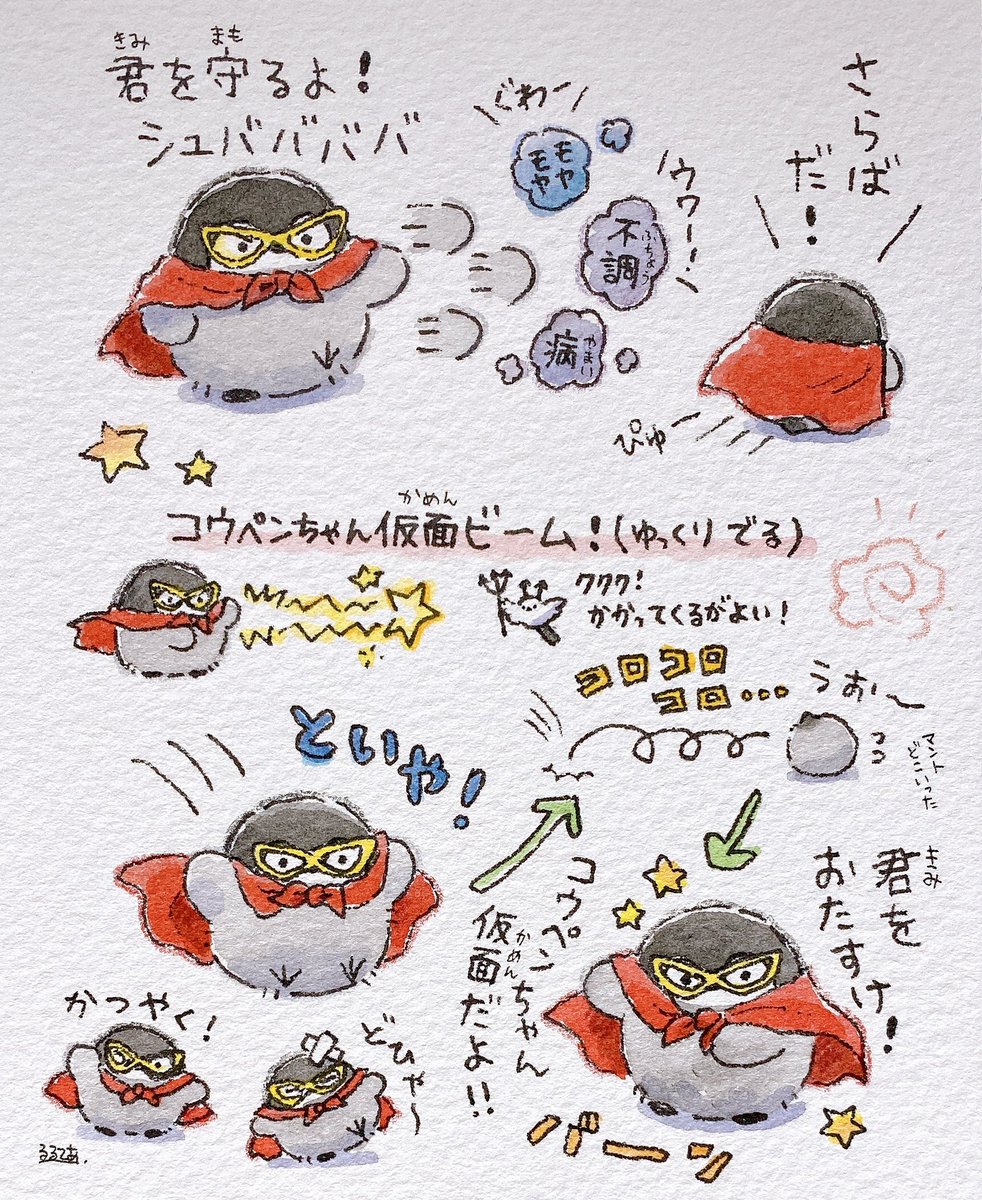 君を守るよ!
きみ
まも
シュババババ
ぐわー
モヤ
モヤ
ウワー!
不調
ふちょう
病
やまい
さらば
だ!
ぴゅー
コウペンちゃん仮面ビーム!(ゆっくりでる)
かめん
ククク!
かかってくるがよい!
コロコロ
コロ...
うお〜
ココ
マント
どこいった
といや!
コウペンちゃん
仮面だよ!!
かめん
君を
きみ
おたすけ!
バーン
かつやく!
どひゃ〜
るるてあ.